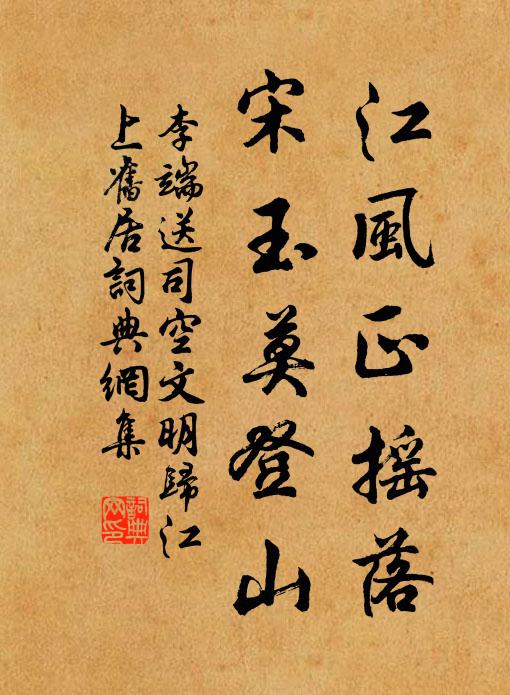 江風正搖落
宋玉莫登山
李端送司空文明歸江
上舊居詞典網集
詞典
网印